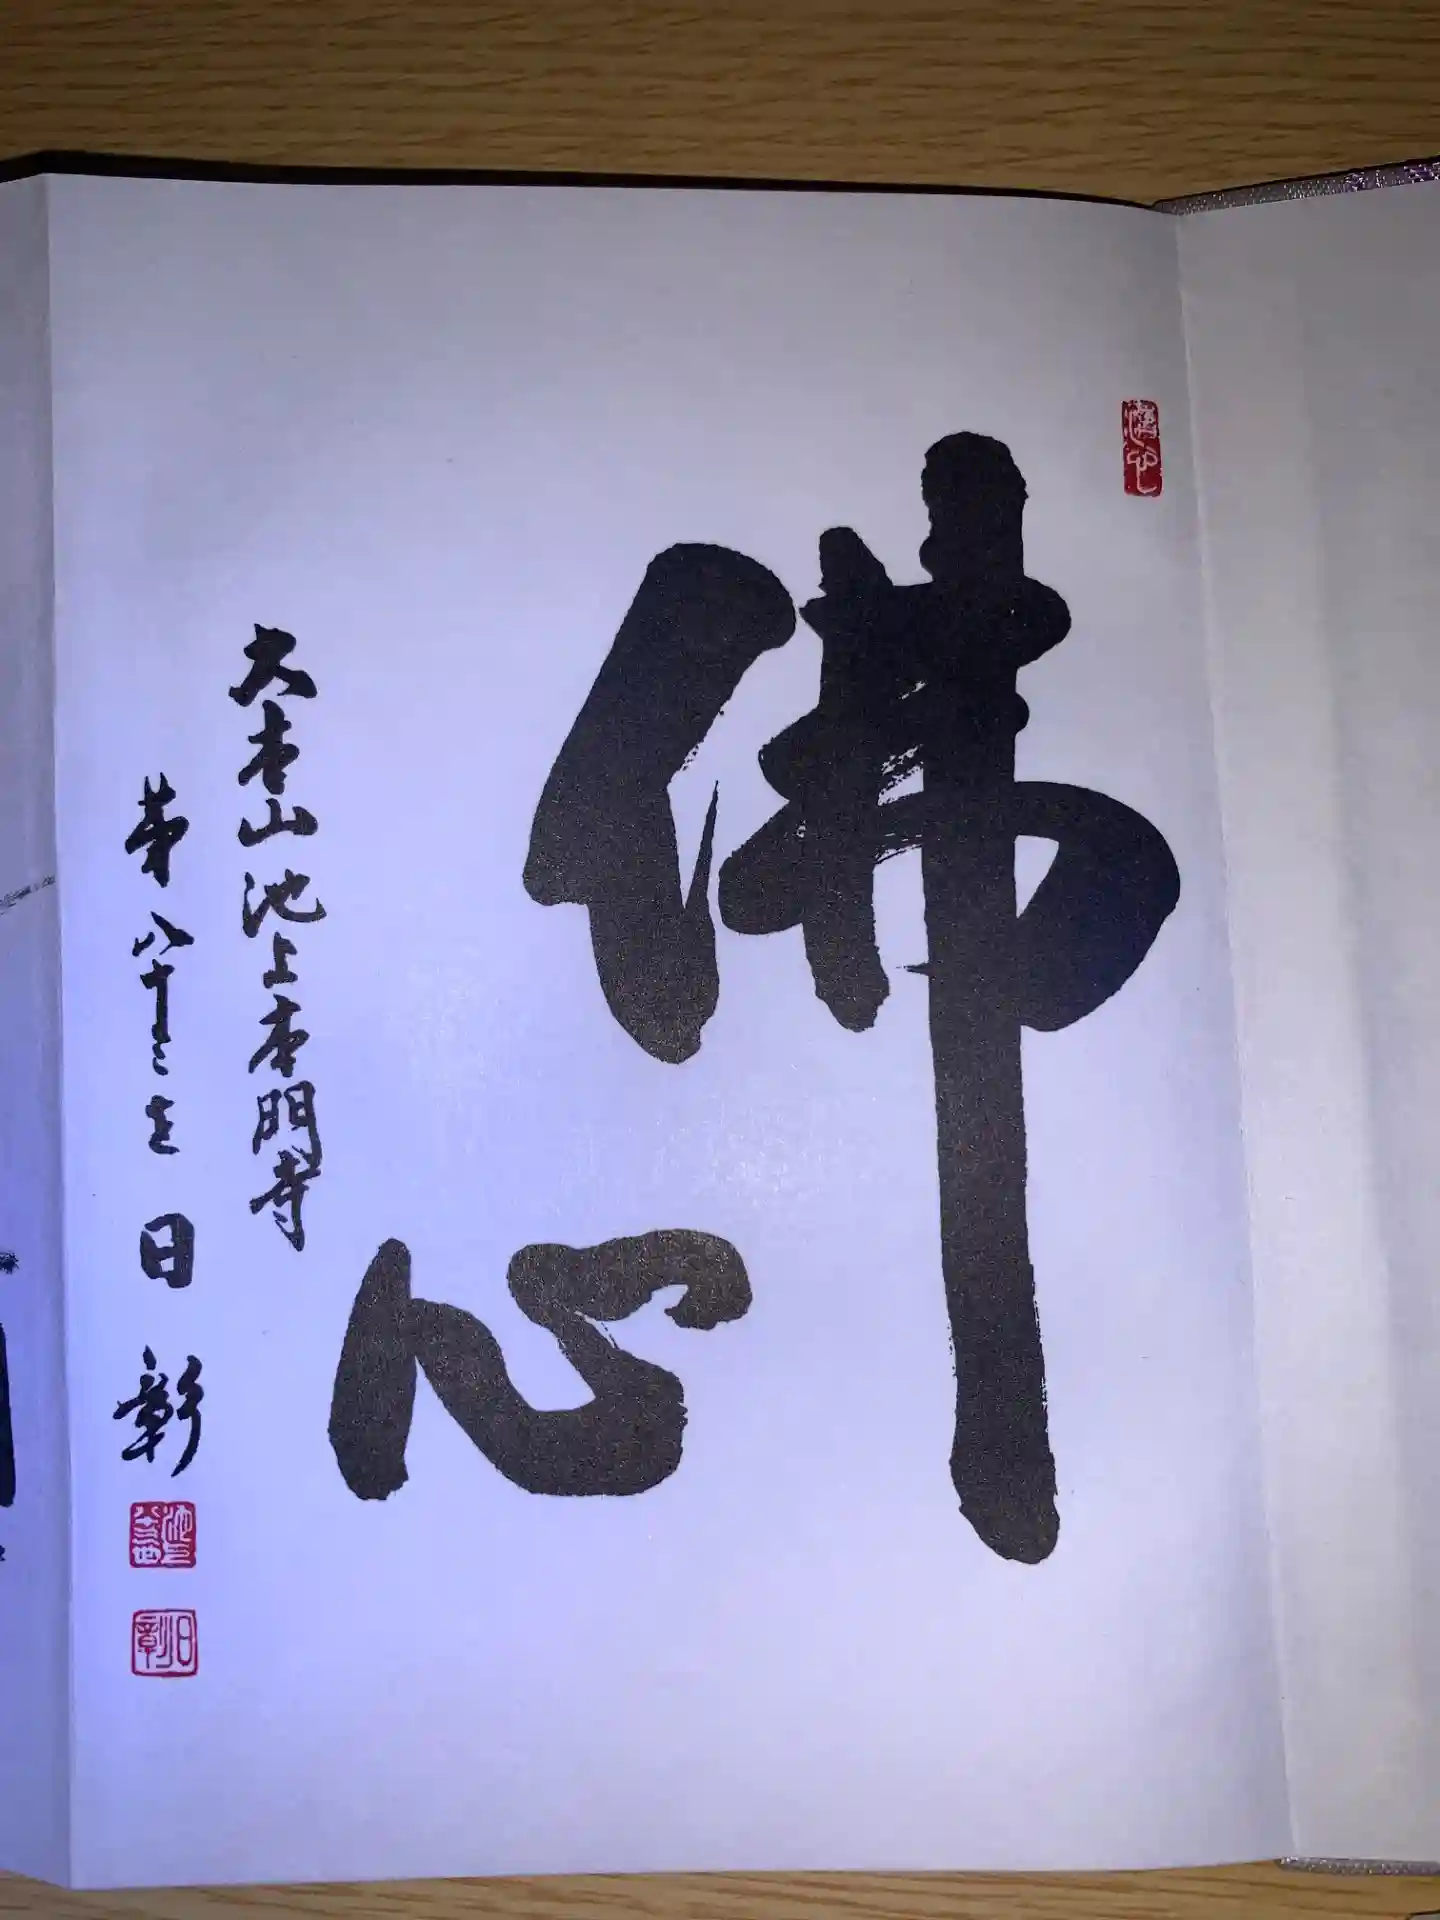 佛心
大本山池上本門寺
第八十三世 日彰
日彰